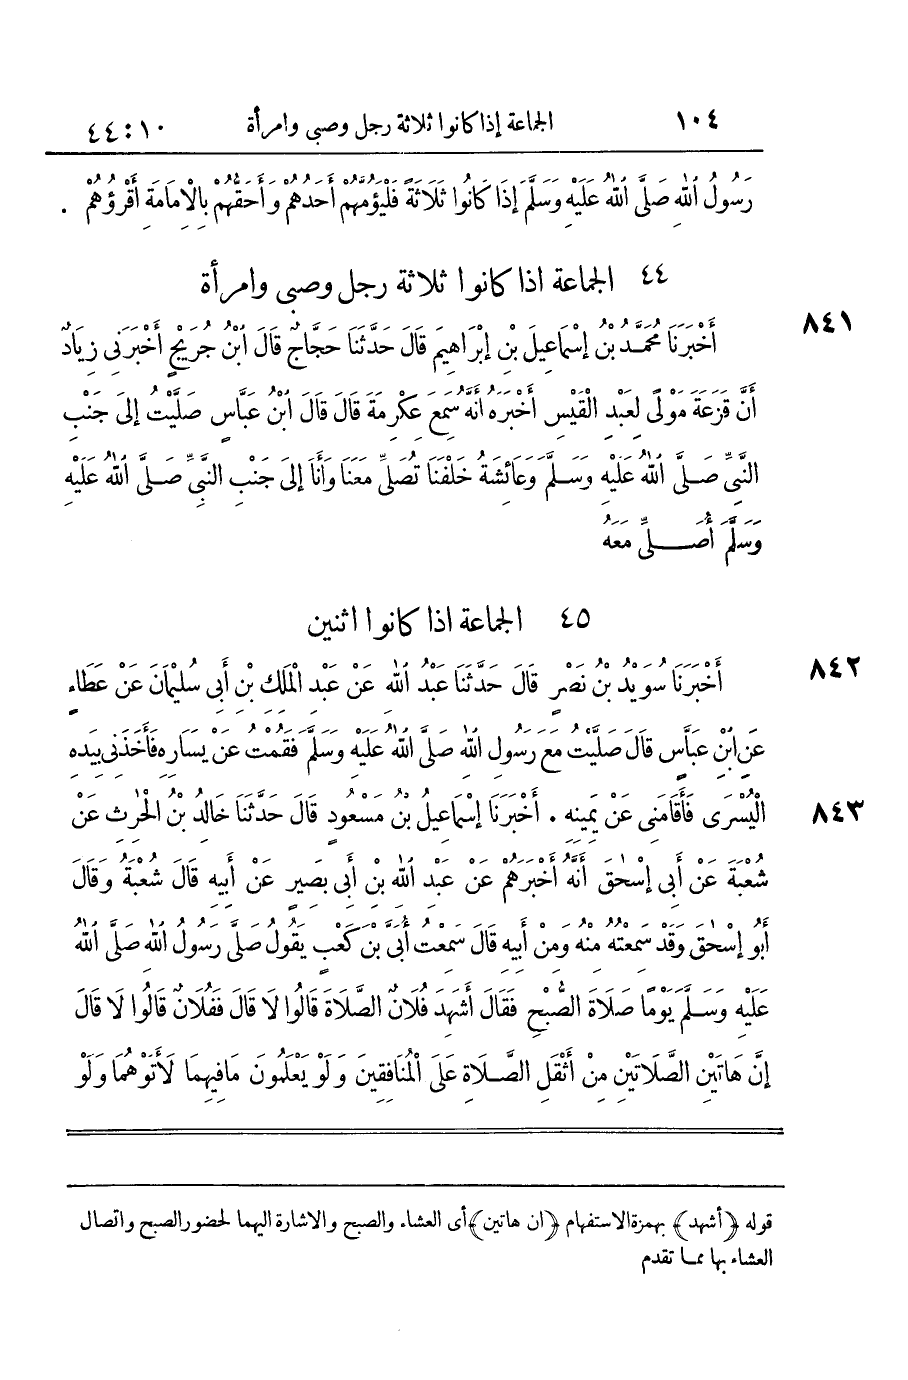 ١٠٤ الجماعة إذا كانوا ثلاثة رجل وصبى وامرأة ١٠ : ٤٤
رَسُولُ اللهِ صَلَّى اللهُ عَلَيْهِ وَسَلَّمَ إِذَا كَانُوا ثَلَاثَةً فَلْيَؤُمَّهُمْ أَحَدُهُمْ وَأَحَقُّهُمْ بِالْإِمَامَةِ أَقْرَؤُهُمْ .
٤٤ الجماعة اذا كانوا ثلاثة رجل وصبى وامرأة
٨٤١ أَخْبَرَنَا مُحَمَّدُ بْنُ إِسْمَاعِيلَ بْنِ إِبْرَاهِيمَ قَالَ حَدَّثَنَا حَجَّاجٌ قَالَ ابْنُ جُرَيْجٍ أَخْبَرَنِى زِيَادٌ
أَنَّ قَزَعَةَ مَوْلًى لِعَبْدِ الْقَيْسِ أَخْبَرَهُ أَنَّهُ سَمِعَ عِكْرِمَةَ قَالَ قَالَ ابْنُ عَبَّاسٍ صَلَّيْتُ إِلَى جَنْبِ
النَّبِىِّ صَلَّى اللهُ عَلَيْهِ وَسَلَّمَ وَعَائِشَةُ خَلْفَنَا تُصَلِّى مَعَنَا وَأَنَا إِلَى جَنْبِ النَّبِىِّ صَلَّى اللهُ عَلَيْهِ
وَسَلَّمَ أُصَلِّى مَعَهُ
٤٥ الجماعة اذا كانوا اثنين
٨٤٢ أَخْبَرَنَا سُوَيْدُ بْنُ نَصْرٍ قَالَ حَدَّثَنَا عَبْدُ اللهِ عَنْ عَبْدِ الْمَلِكِ بْنِ أَبِى سُلَيْمَانَ عَنْ عَطَاءٍ
عَنِ ابْنِ عَبَّاسٍ قَالَ صَلَّيْتُ مَعَ رَسُولِ اللهِ صَلَّى اللهُ عَلَيْهِ وَسَلَّمَ فَقُمْتُ عَنْ يَسَارِهِ فَأَخَذَنِى بِيَدِهِ
٨٤٣ الْيُسْرَى فَأَقَامَنِى عَنْ يَمِينِهِ . أَخْبَرَنَا إِسْمَاعِيلُ بْنُ مَسْعُودٍ قَالَ حَدَّثَنَا خَالِدُ بْنُ الْحٰرِثِ عَنْ
شُعْبَةَ عَنْ أَبِى إِسْحٰقَ أَنَّهُ أَخْبَرَهُمْ عَنْ عَبْدِ اللهِ بْنِ أَبِى بَصِيرٍ عَنْ أَبِيهِ قَالَ شُعْبَةُ وَقَالَ
أَبُو إِسْحٰقَ وَقَدْ سَمِعْتُهُ مِنْهُ وَمِنْ أَبِيهِ قَالَ سَمِعْتُ أُبَىَّ بْنَ كَعْبٍ يَقُولُ صَلَّى رَسُولُ اللهِ صَلَّى اللهُ
عَلَيْهِ وَسَلَّمَ يَوْمًا صَلَاةَ الصُّبْحِ فَقَالَ أَشَهِدَ فُلَانٌ الصَّلَاةَ قَالُوا لَا قَالَ فَفُلَانٌ قَالُوا لَا قَالَ
إِنَّ هَاتَيْنِ الصَّلَاتَيْنِ مِنْ أَثْقَلِ الصَّلَاةِ عَلَى الْمُنَافِقِينَ وَلَوْ يَعْلَمُونَ مَافِيهِمَا لَأَتَوْهُمَا وَلَوْ
قوله ﴿أشهد﴾ بهمزة الاستفهام ﴿ان هاتين﴾ أى العشاء والصبح والاشارة اليهما لحضور الصبح واتصال
العشاء بها مما تقدم